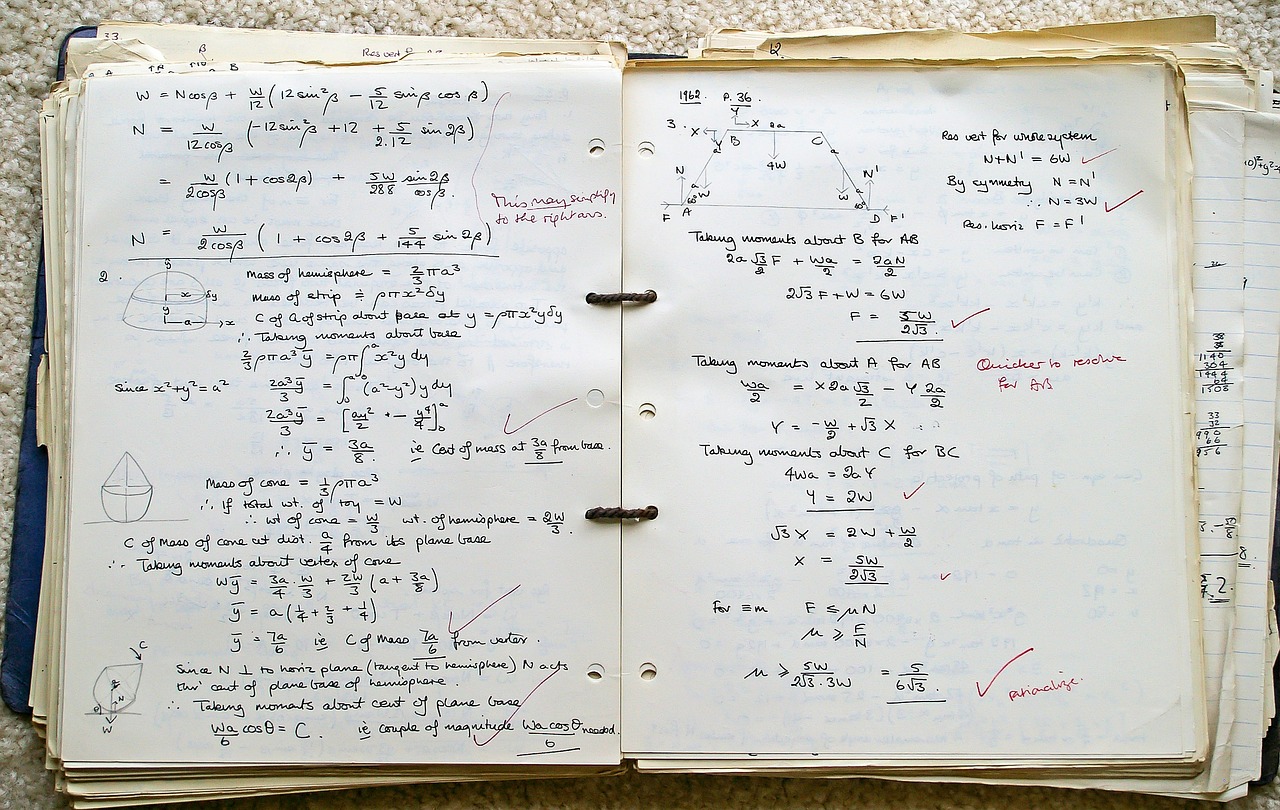 33.
β
Res vert
A B
W = N cos β + W/12 (12 sin²β − 5/12 sin β cos β)
N = W/12cosβ (−12 sin²β + 12 + 5/2.12 sin 2β)
= W/2cosβ (1 + cos 2β) + 5W/288 sin2β/cosβ.
This may simplify
to the right ans.
N = W/2cosβ (1 + cos 2β + 5/144 sin 2β)
2.
y
x δy
y
a x
Mass of hemisphere = 2/3 πa³
Mass of strip ≑ ρπx²δy
C of G of strip about base at y = ρπx²yδy
∴ Taking moments about base
2/3 ρπa³ȳ = ρπ∫₀ᵃ x²y dy
Since x²+y² = a² 2a³ȳ/3 = ∫₀ᵃ (a²−y²) y dy
2a³ȳ/3 = [ay²/2 − y⁴/4]₀ᵃ
∴ ȳ = 3a/8 ie Cent of mass at 3a/8 from base.
Mass of cone = 1/3 ρπa³
∴ If total wt. of toy = W
∴ wt of cone = W/3 wt. of hemisphere = 2W/3.
C of Mass of cone at dist. a/4 from its plane base
∴ Taking moments about vertex of cone
Wȳ = 3a/4 · W/3 + 2W/3 (a + 3a/8)
ȳ = a(1/4 + 2/3 + 1/4)
ȳ = 7a/6 ie C of Mass 7a/6 from vertex.
C
N
θ
W
Since N ⊥ to horiz plane (tangent to hemisphere) N acts
thro' cent of plane base of hemisphere.
∴ Taking moments about cent of plane base
Wa/6 cos θ = C. ie couple of magnitude Wa cos θ/6 needed.
62.
1962. P. 36.
3. Y
X X 2a
Y B C
a a
4W
N a a N'
W W
60° 60°
F A D F'
Res vert for whole system
N+N' = 6W
By symmetry N = N'
∴ N = 3W
Res. horiz F = F'
Taking moments about B for AB
2a √3/2 F + Wa/2 = 2aN/2
2√3 F + W = 6W
F = 5W/2√3.
Taking moments about A for AB
Quicker to resolve
for AB
Wa/2 = X 2a √3/2 − Y 2a/2
Y = −W/2 + √3 X
Taking moments about C for BC
4Wa = 2aY
Y = 2W
√3 X = 2W + W/2
X = 5W/2√3
For ≡m F ≤ μN
μ ≥ F/N
μ ≥ 5W/2√3.3W = 5/6√3.
rationalize.
38
38
1140
304
1444
64
1508
33
32
990
66
956